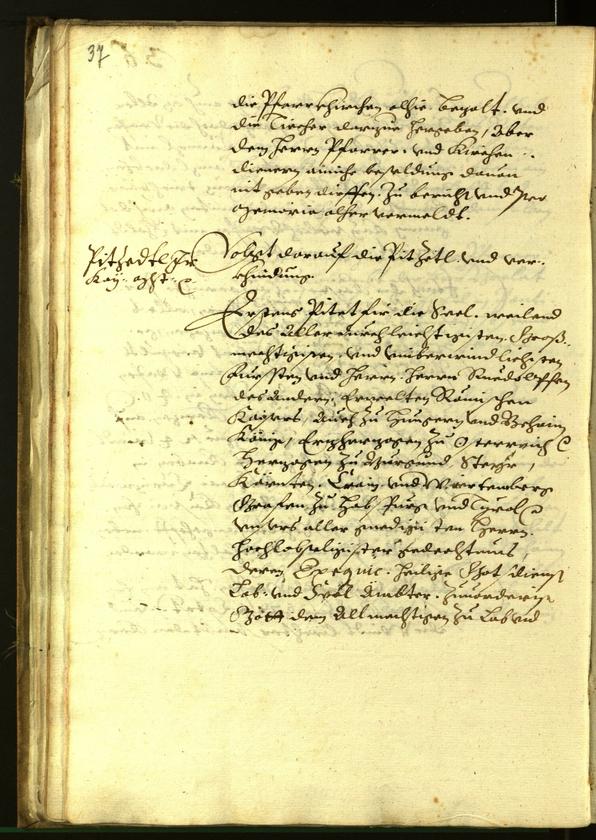 37
die Pfarrkhürchen alhie bezalt. und
die Tiecher darzue hergeben, Aber
dem Herrn Pfarrer. und Kirchen
dienern ainiche besoldung davon
nit geben dieffen. Zu bericht und per
memoria alher vermeldt.
Pitzedtl Ir
Kay:
Volgt darauf die Pit Zetl. und ver-
khindung.
Erstens Pitet für die Seel. weiland
des Allerdurchleichtigisten. Groß-
mechtigisten. und unüberwindlichisten
Fürsten und Herrn. Herrn Ruedolffen
des andern, Erwelten Römischen
Kaisers, auch zu Hungern und Behaim
König, Erzherzogen zu Osterreich
Herzogen zu Burgund Steyr,
Kärnten. Crain und Wiertemberg
Grafen zu Habspurg und Tyrol
unsers aller genedigisten Herrn.
hochlobseligister gedechtnus,
deren Exequie. heilige Gotdienst
Lob. und Seel Ambter. zuvorderist
Gott dem Allmechtigen zu Lob und